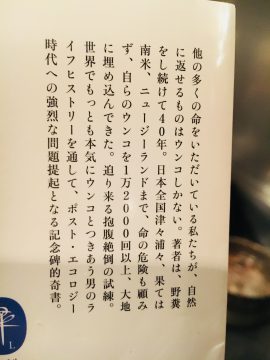 他の多くの命をいただいている私たちが、自然
に返せるものはウンコしかない。著者は、野糞
をし続けて40年。日本全国津々浦々、果ては
南米、ニュージーランドまで、命の危険も顧み
ず、自らのウンコを1万2000回以上、大地
に埋め込んできた。迫り来る抱腹絶倒の試練。
世界でもっとも本気にウンコとつきあう男のラ
イフヒストリーを通して、ポスト・エコロジー
時代への強烈な問題提起となる記念碑的奇書。
L